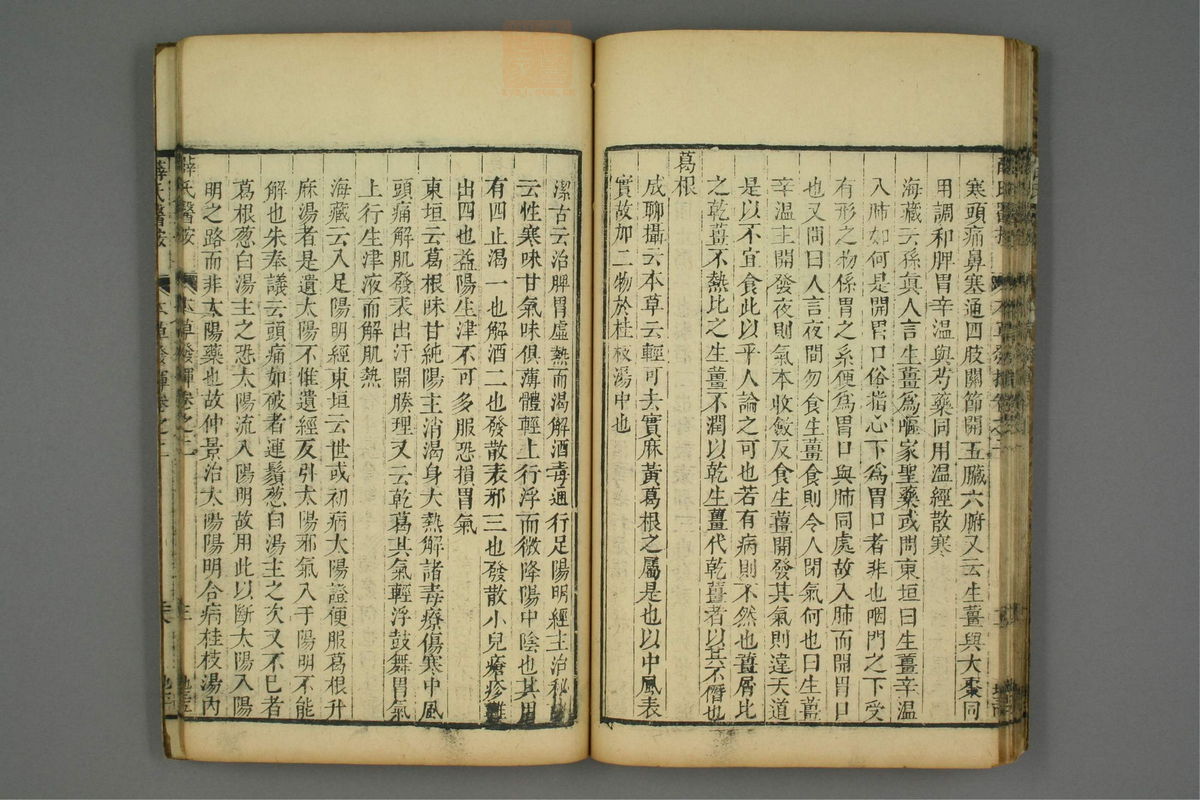 寒頭痛鼻塞通四肢關節開五臟六腑又云生薑與大棗同
用調和脾胃辛溫與芍藥同用溫經散寒
海藏云孫眞人言生薑爲嘔家聖藥或問東垣曰生薑辛溫
入肺如何是開胃口俗指心下爲胃口者非也咽門之下受
有形之物係胃之系便爲胃口與肺同處故入肺而開胃口
也又問曰人言夜間勿食生薑食則令人閉氣何也曰生薑
辛溫主開發夜則氣本收斂反食生薑開發其氣則違天道
是以不宜食此以平人論之可也若有病則不然也薑屑比
之乾薑不熱比之生薑不潤以乾生薑代乾薑者以其不僭也
葛根
成聊攝云本草云輕可去實麻黃葛根之屬是也以中風表
實故加二物於桂枝湯中也
潔古云治脾胃虛熱而渴解酒毒通行足陽明經主治秘
云性寒味甘氣味俱薄體輕上行浮而微降陽中陰也其用
有四止渴一也解酒二也發散表邪三也發散小兒瘡疹難
出四也益陽生津不可多服恐損胃氣
東垣云葛根味甘純陽主消渴身大熱解諸毒療傷寒中風
頭痛解肌發表出汗開腠理又云乾葛其氣輕浮鼓舞胃氣
上行生津液而解肌熱
海藏云入足陽明經東垣云世或初病太陽證便服葛根升
麻湯者是遺太陽不惟遺經反引太陽邪氣入于陽明不能
解也朱奉議云頭痛如破者連鬚葱白湯主之次又不已者
葛根葱白湯主之恐太陽流入陽明故用此以斷太陽入陽
明之路而非太陽藥也故仲景治太陽陽明合病桂枝湯內
薛氏醫按 本草發揮卷之二